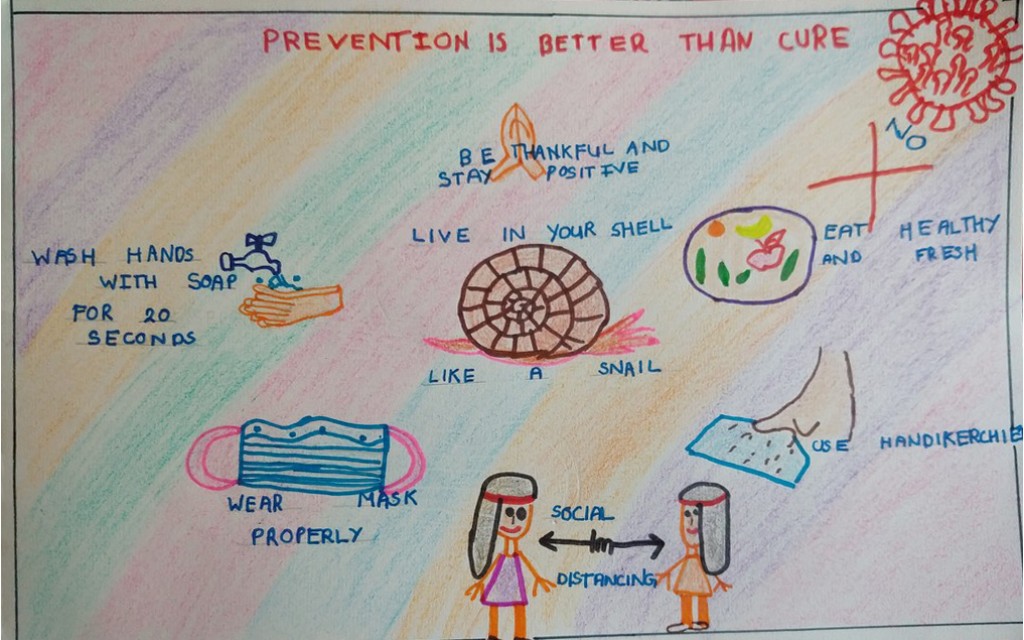 PREVENTION IS BETTER THAN CURE
NO
BE THANKFUL AND
STAY POSITIVE
LIVE IN YOUR SHELL
LIKE A SNAIL
EAT HEALTHY
AND FRESH
WASH HANDS
WITH SOAP
FOR 20
SECONDS
USE HANDIKERCHIE
WEAR MASK
PROPERLY
SOCIAL
1m
DISTANCING